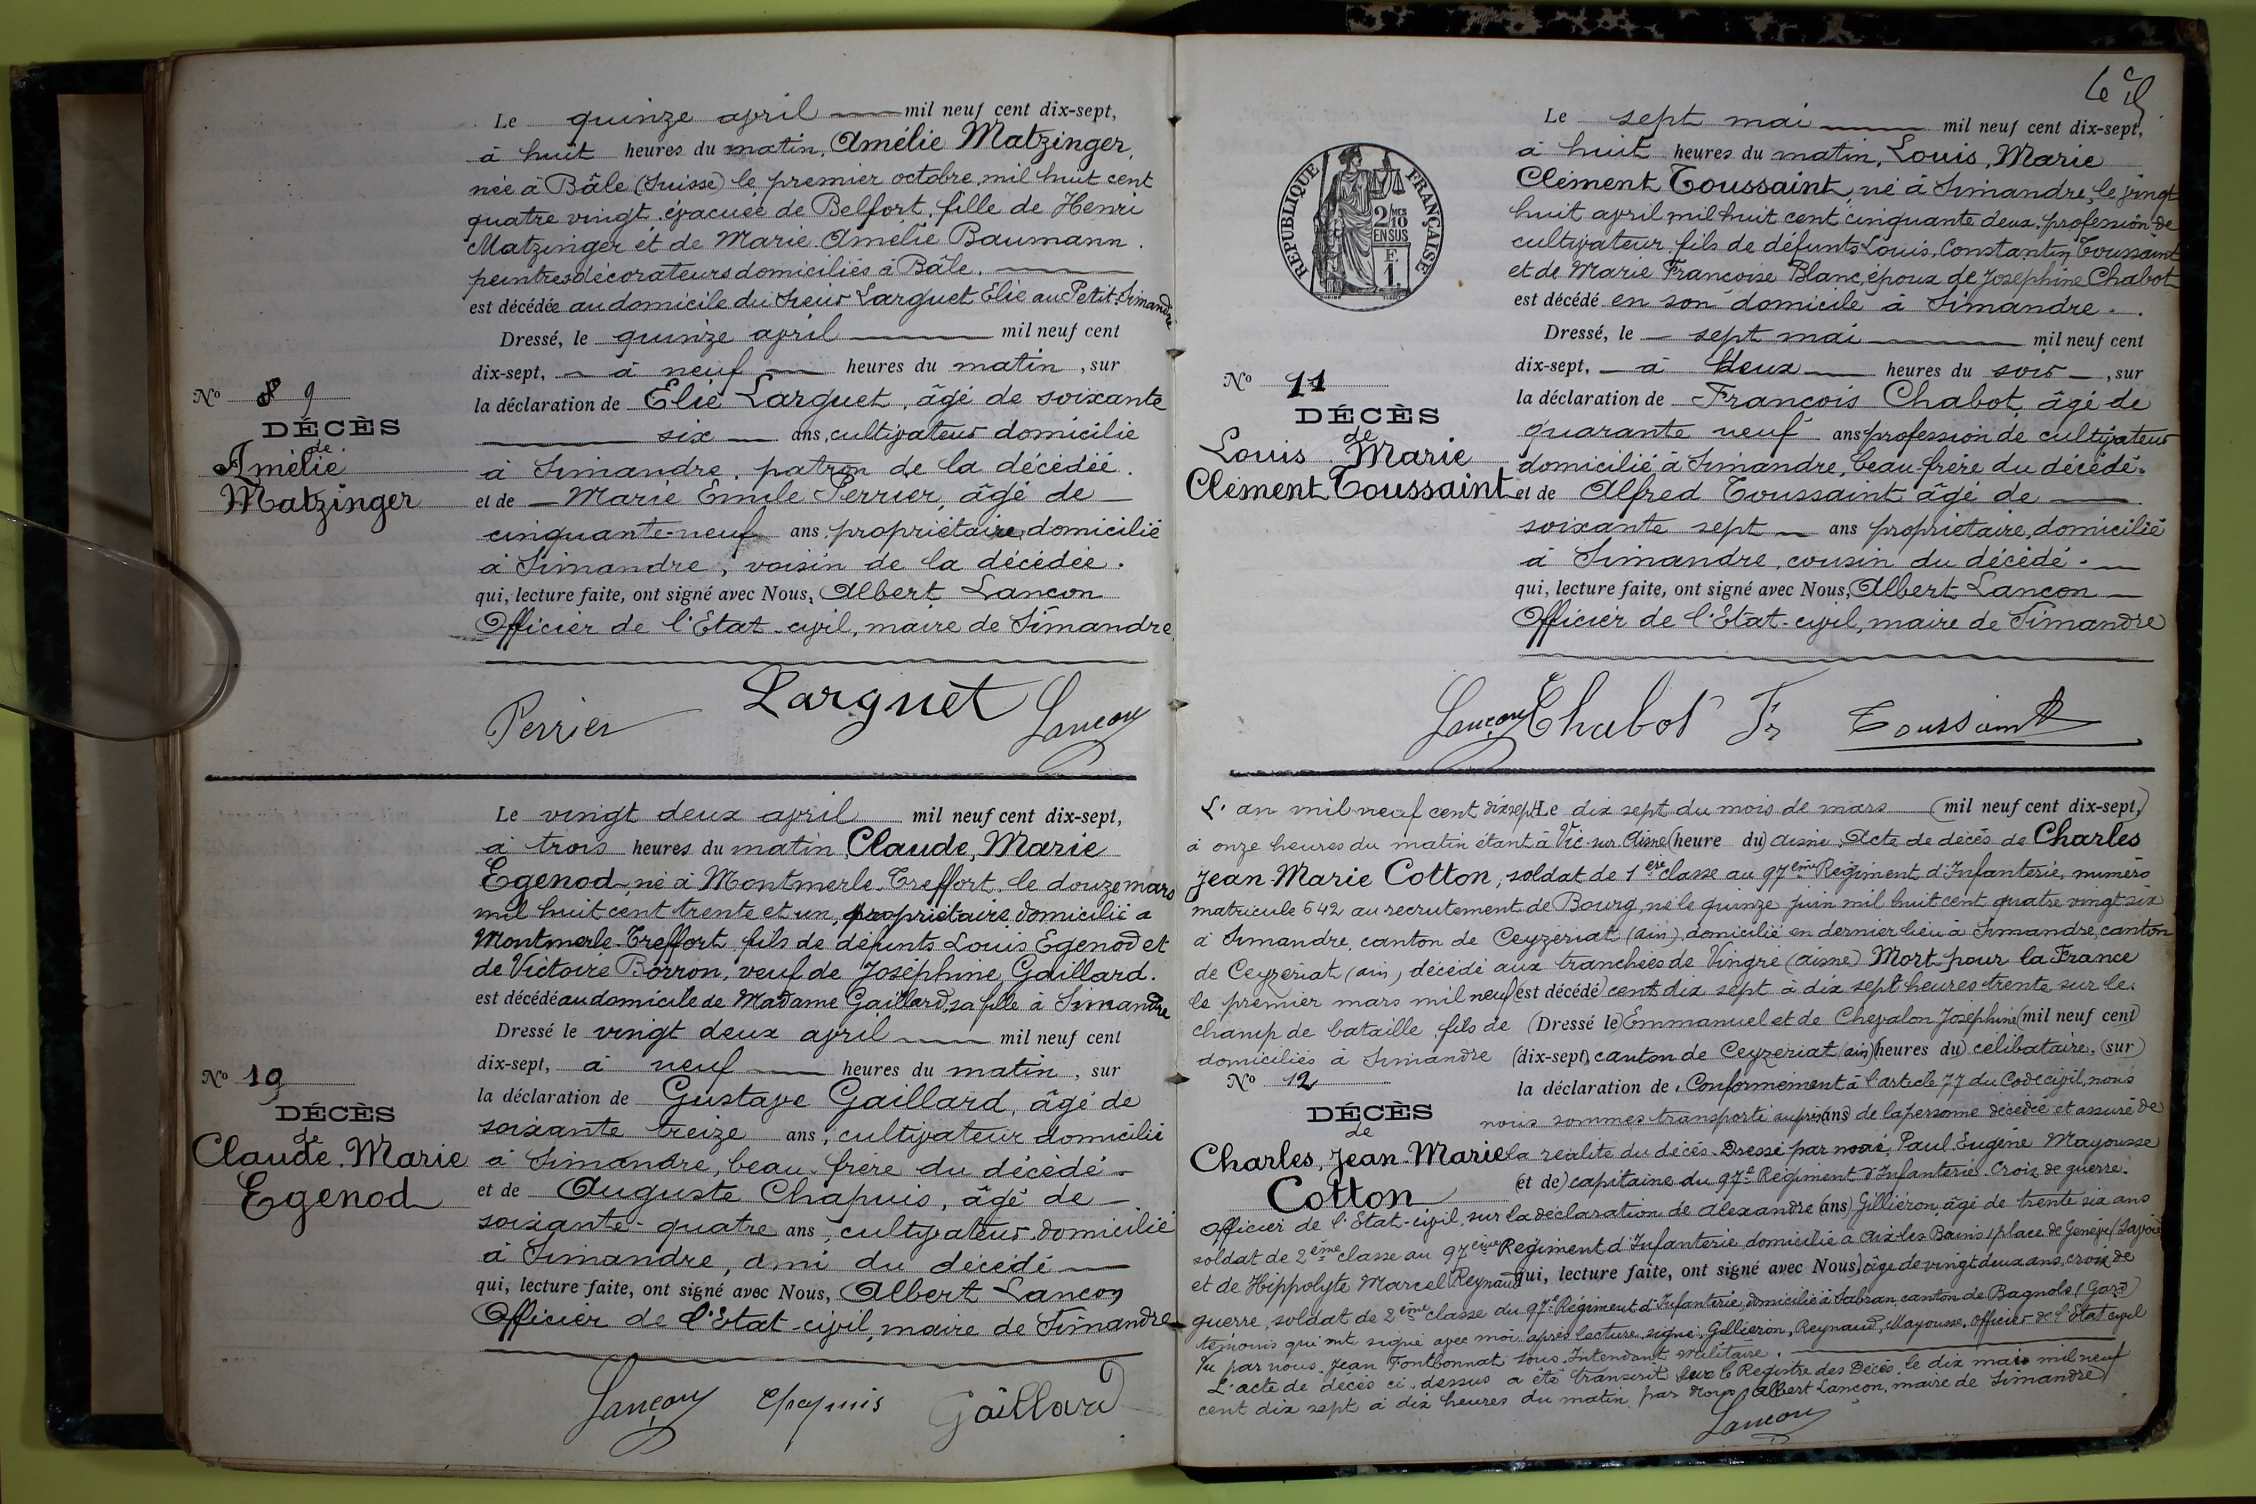 Le quinze april mil neuf cent dix-sept,
à huit heures du matin, Amélie Matzinger,
née à Bâle (Suisse) le premier octobre mil huit cent
quatre vingt évacuée de Belfort, fille de Henri
Matzinger et de Marie Amelie Baumann.
peintres décorateurs domiciliés à Bâle.
est décédée au domicile du Sieur Larguet Elie au Petit-Simandre
Dressé, le quinze april mil neuf cent
dix-sept, à neuf heures du matin, sur
la déclaration de Elie Larguet, âgé de soixante
six ans, cultivateur domicilié
à Simandre, patron de la décédée.
et de Marie Emile Perrier, âgé de
cinquante-neuf ans propriétaire, domicilié
à Simandre, voisin de la décédée.
qui, lecture faite, ont signé avec Nous, Albert Lançon
Officier de l'Etat-civil, maire de Simandre
Nº 9
DÉCÈS
de
Amélie
Matzinger
Perrier Larguet Lançon
Le vingt deux april mil neuf cent dix-sept,
à trois heures du matin Claude, Marie
Egenod, né à Montmerle-Treffort, le douze mars
mil huit cent trente et un, propriétaire domicilié à
Montmerle-Treffort fils de défunts Louis Egenod et
de Victoire Borron, veuf de Joséphine Gaillard.
est décédé au domicile de Madame Gaillard, sa fille à Simandre
Dressé le vingt deux april mil neuf cent
dix-sept, à neuf heures du matin, sur
la déclaration de Gustave Gaillard, âgé de
soixante treize ans, cultivateur domicilié
à Simandre, beau-frère du décédé
et de Auguste Chapuis, âgé de
soixante-quatre ans, cultivateur domicilié
à Simandre, ami du décédé
qui, lecture faite, ont signé avec Nous, Albert Lançon
Officier de l'Etat-civil, maire de Simandre
Nº 10
DÉCÈS
de
Claude-Marie
Egenod
Lançon Chapuis Gaillard
RÉPUBLIQUE FRANÇAISE
2/10MES
EN SUS
Le sept mai mil neuf cent dix-sept,
à huit heures du matin, Louis, Marie
Clément Toussaint, né à Simandre, le vingt
huit april mil huit cent cinquante deux, profession de
cultivateur, fils de défunts Louis, Constantin Toussaint
et de Marie Francoise Blanc, époux de Joséphine Chabot
est décédé en son domicile à Simandre.
Dressé, le sept mai mil neuf cent
dix-sept, à deux heures du soir, sur
la déclaration de François Chabot, âgé de
quarante neuf ans profession de cultivateur
domicilié à Simandre, beau-frère du décédé.
et de Alfred Toussaint âgé de
soixante sept ans propriétaire, domicilié
à Simandre, cousin du décédé.
qui, lecture faite, ont signé avec Nous, Albert Lançon
Officier de l'Etat-civil, maire de Simandre
Nº 11
DÉCÈS
de
Louis Marie
Clément Toussaint
Lançon Chabot Fs Toussaint
L'an mil neuf cent dix sept Le dix sept du mois de mars (mil neuf cent dix-sept,)
à onze heures du matin étant à Vic-sur-Aisne (heure du) aisne, Acte de décès de Charles
Jean-Marie Cotton, soldat de 1ère classe au 97ème Régiment d'Infanterie, numéro
matricule 642 au recrutement de Bourg, né le quinze juin mil huit cent quatre vingt six
à Simandre, canton de Ceyzériat (ain), domicilié en dernier lieu à Simandre, canton
de Ceyzériat (ain), décédé aux tranchées de Vingré (aisne) Mort pour la France
le premier mars mil neuf (est décédé) cent dix sept à dix sept heures trente sur le
champ de bataille, fils de (Dressé le) Emmanuel et de Chevalon Joséphine (mil neuf cent)
domiciliés à Simandre (dix-sept), canton de Ceyzériat (ain) (heures du) célibataire, (sur)
la déclaration de, Conformément à l'article 77 du Code civil, nous
nous sommes transporté auprès (ans) de la personne décédée et assuré de
la réalité du décès. Dressé par nous, Paul Eugène Mayousse
(et de) capitaine du 97e Régiment d'Infanterie Croix de guerre.
Officier de l'Etat-civil, sur la déclaration de Alexandre (ans) Gilliéron, âgé de trente six ans
soldat de 2ème classe au 97ème Régiment d'Infanterie domicilié à Aix-les Bains, place de Genève (Savoie)
et de Hippolyte Marcel Reynaud (qui, lecture faite, ont signé avec Nous,) âgé de vingt deux ans, croix de
guerre, soldat de 2ème classe du 97e Régiment d'Infanterie, domicilié à Sabran, canton de Bagnols (Gard)
témoins qui ont signé avec moi après lecture, signé, Gilliéron, Reynaud, Mayousse, officier de l'Etat civil
Vu par nous, Jean Fontbonnat sous-Intendant militaire.
L'acte de décès ci-dessus a été transcrit sur le Registre des Décès, le dix mai mil neuf
cent dix sept à dix heures du matin par Nous, Albert Lançon, maire de Simandre
Nº 12
DÉCÈS
de
Charles, Jean-Marie
Cotton
Lançon